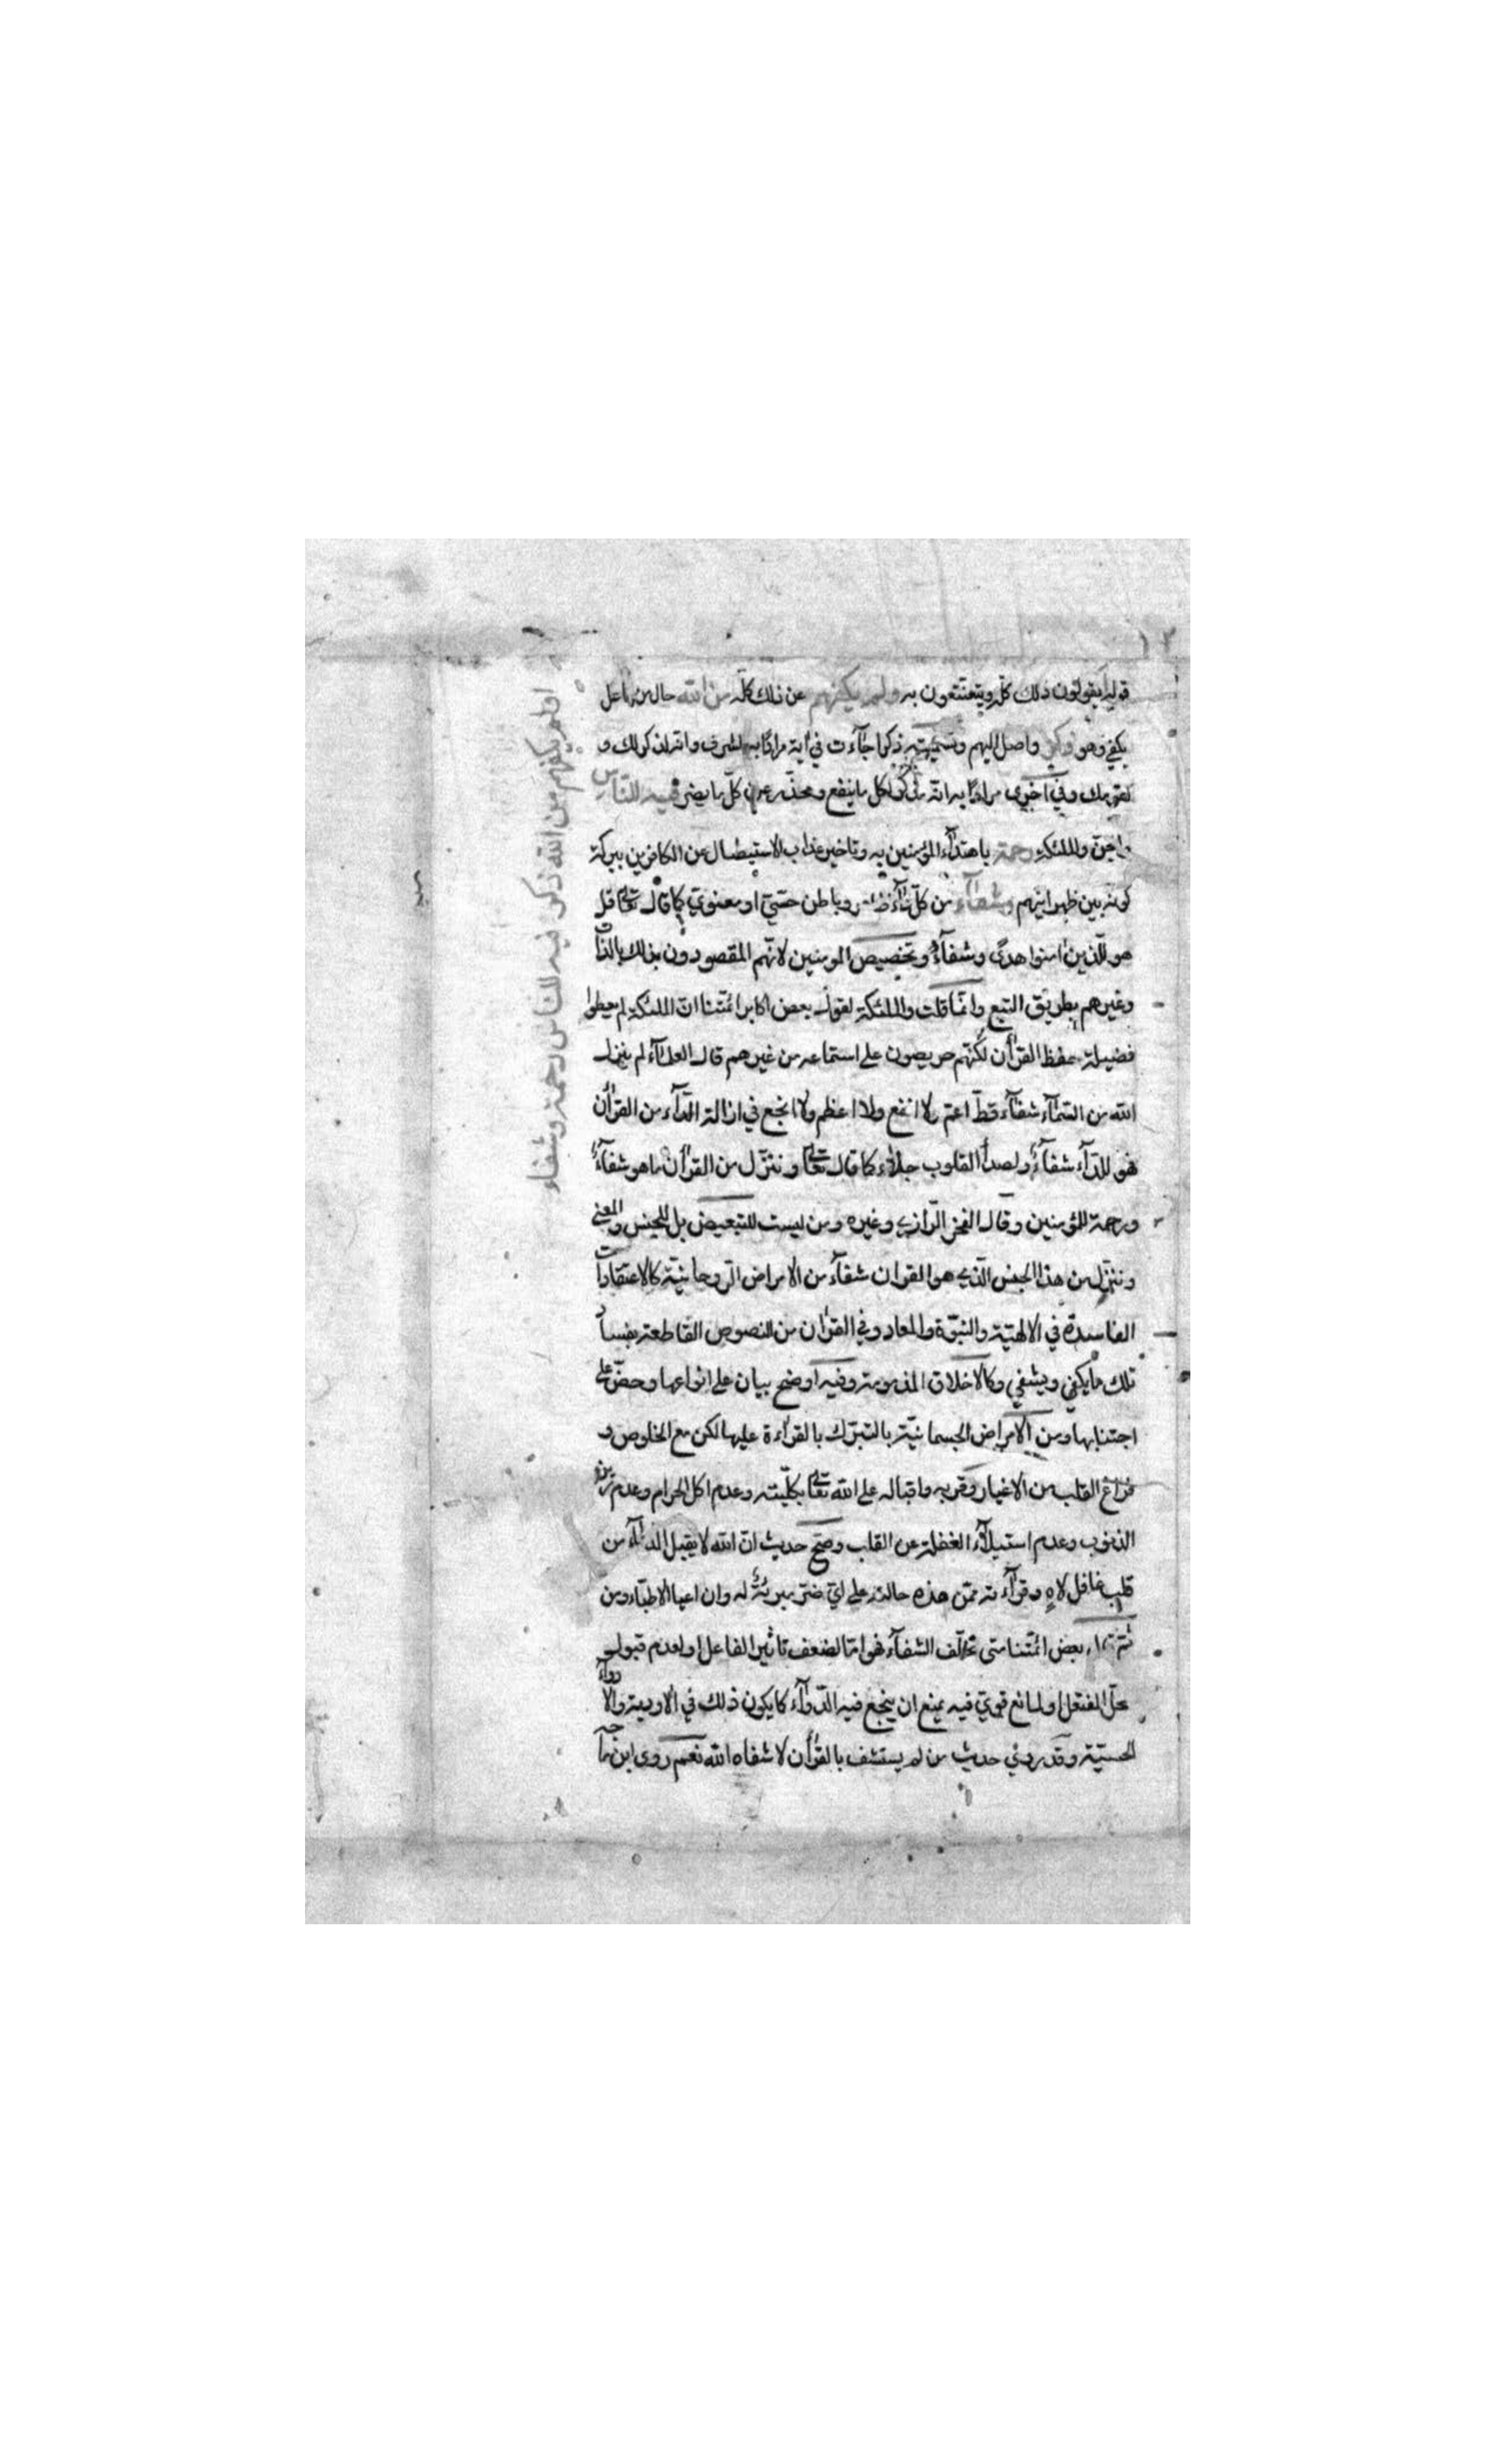 يقولون ذلك كلّه ويتعنّتون به ولم يكفهم عن ذلك كلّه من الله حال من فاعل
يكفي وهو ذكر واصل اليهم وتسميته ذكرا جاءت في اية مرادًا به الشرف وانّه لذكر لك و
لقومك وفي اخرى مرادًا به انّه مذكّر لكل ما ينفع ومحذّر عن كلّ ما يضر فيه للناس
والجنّ والملئكة رحمة باهتداء المؤمنين به وتاخير عذاب الاستيصال عن الكافرين ببركة
كونه بين ظهرانيهم وشفاء من كلّ داء ظاهر وباطن حسّيّ او معنويّ كما قال تعالى قل
هو للّذين اٰمنوا هدًى وشفآءٌ وتخصيص المومنين لانّهم المقصودون بذلك بالذّات
وغيرهم بطريق التبع وانّما قلت والملئكة لقول بعض اكابر ائمّتنا انّ الملئكة لم يعطوا
فضيلة حفظ القرآن لكنّهم حريصون على استماعه من غيرهم قال العلمآء لم ينزل
الله من السّمآء شفآء قطّ اعمّ ولا انفع ولا اعظم ولا انجع في ازالة الدّآء من القرآن
فهو للدّآء شفآءٌ ولصدأ القلوب جلاء كما قال تعالى وننزّل من القرآن ما هو شفآءٌ
ورحمة للمؤمنين وقال الفخر الرّازي وغيره ومن ليست للتبعيض بل للجنس والمعنى
وننزّل من هذا الجنس الّذي هو القران شفآء من الامراض الرّوحانيّة كالاعتقادات
الفاسدة في الالهيّة والنّبوّة والمعاد وفي القرٰان من النصوص القاطعة بفساد
تلك ما يكفي ويشفي وكالاخلاق المذمومة وفيه اوضح بيان على انواعها وحضّ على
اجتنابها ومن الامراض الجسمانيّة بالتبرّك بالقراءة عليها لكن مع الخلوص و
فراغ القلب من الاغيار وقربه واقباله على الله تعالى بكلّيّته وعدم اكل الحرام وعدم رين
الذنوب وعدم استيلآء الغفلة عن القلب وصحّ حديث انّ الله لا يقبل الدعآء من
قلب غافل لاهٍ وقرآءته ممّن هذه حالته على ايّ ضرّ مبرئةٌ له وان اعيا الاطبّاء ومن
ثمّ قال بعض ائمّتنا متى تخلّف الشفآء فهو امّا لضعف تاثير الفاعل او لعدم قبول
محلّ المنفعل او لمانع قويّ فيه يمنع ان ينجع فيه الدّوآء كما يكون ذلك في الادوية والادوآء
الحسّيّة وقد روي حديث من لم يستشف بالقرآن لا شفاه الله نعم روى ابن ماجه
اولم يكفهم من الله ذكر فيه للناس رحمة وشفاء